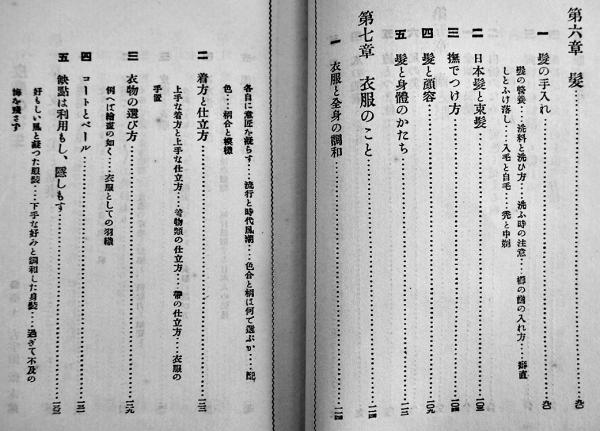 第六章 髪
一 髪の手入れ
髪の營養…洗料と洗ひ方…洗ふ時の注意…櫛の齒の入れ方…癖直
しとふけ落し…入毛と白毛…禿と中剃
二 日本髪と束髪
三 撫でつけ方
四 髪と顔容
五 髪と身體のかたち
第七章 衣服のこと
一 衣服と全身の調和
各自に意匠を凝らす…流行と時代風潮…色合と柄は何で選ぶか…配
色…柄合と模様
二 着方と仕立方
上手な着方と上手な仕立方…着物類の仕立方…帶の仕立方…衣服の
手置
三 衣物の選び方
例へば繪畫の如く…衣服としての羽織
四 コートとベール
五 缺點は利用もし、隱しもす
好もしい風と凝つた服裝…下手な好みと調和した身裝…過ぎて不及の
悔を殘さず